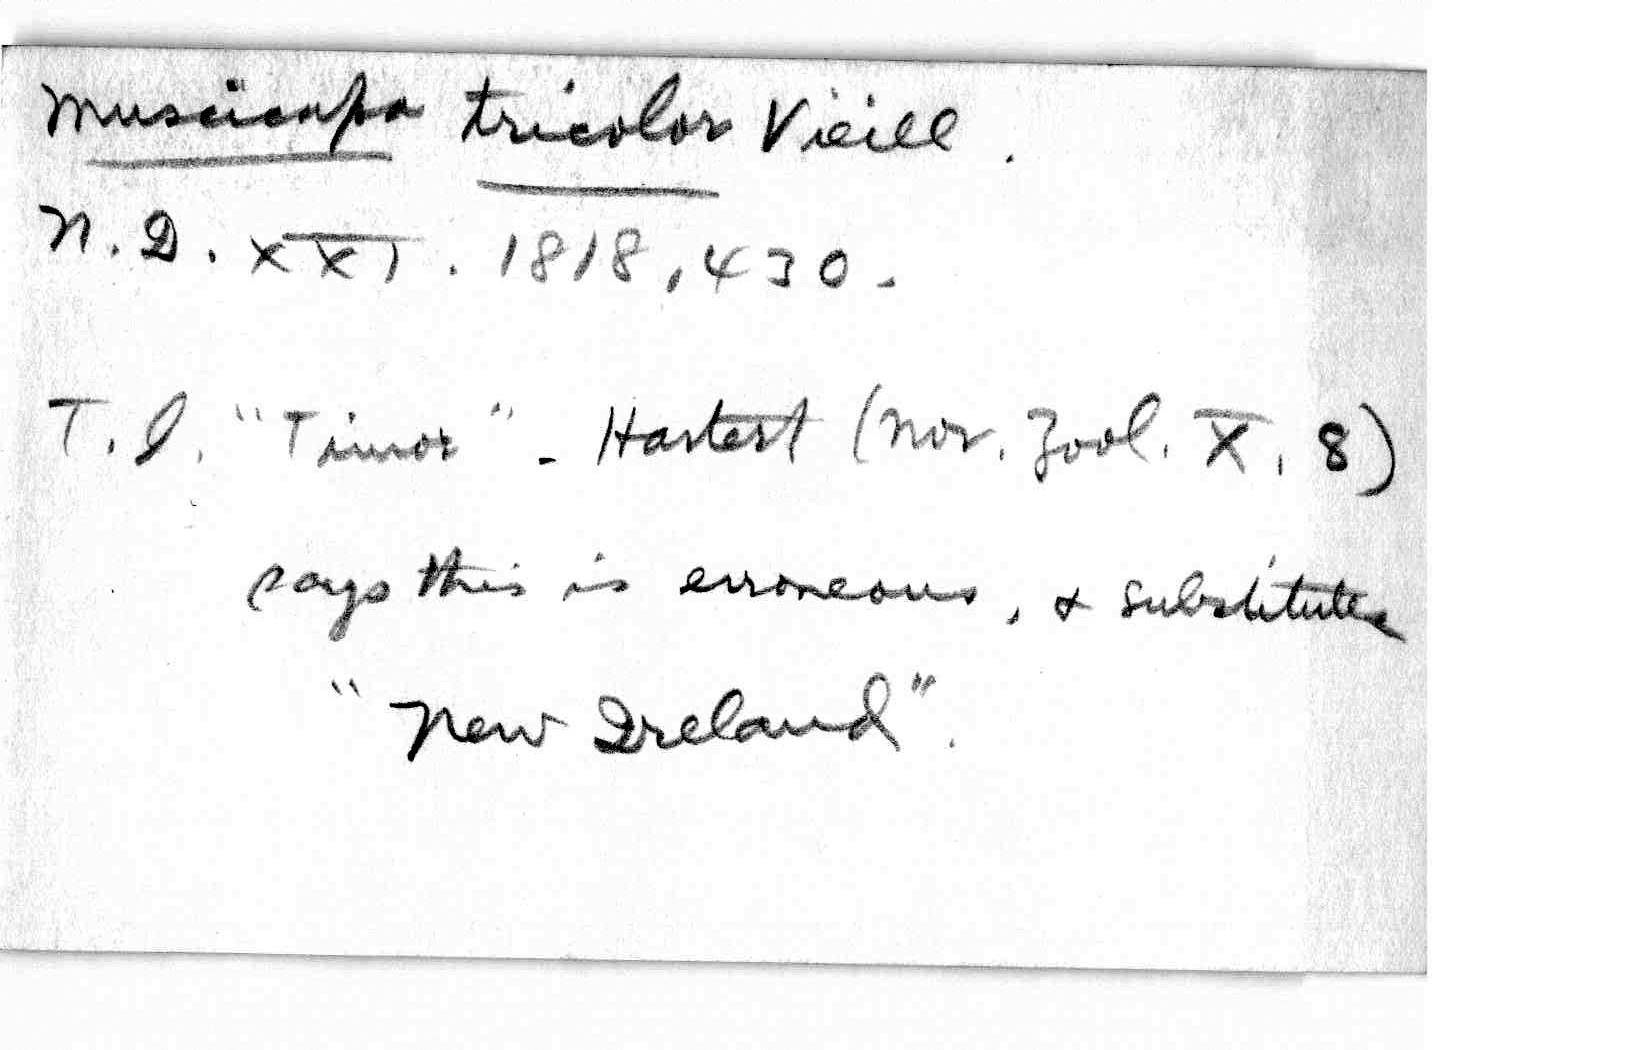 Muscicapa tricolor Vieill.
N.D. XXI. 1818, 430.
T.L. "Timor" - Hartert (Nov. Zool. X, 8)
says this is erroneous, & substitutes
"New Ireland".